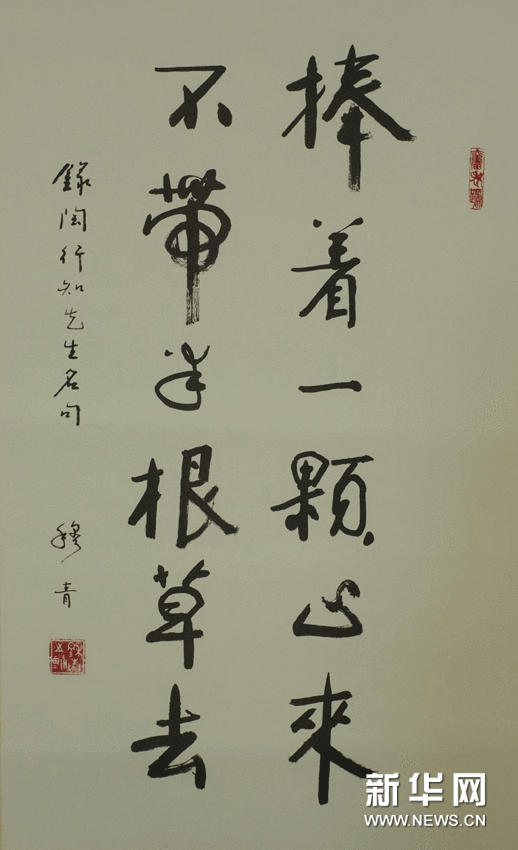 捧着一颗心来
不带半根草去
録陶行知先生名句
穆青
新华网
WWW.NEWS.CN